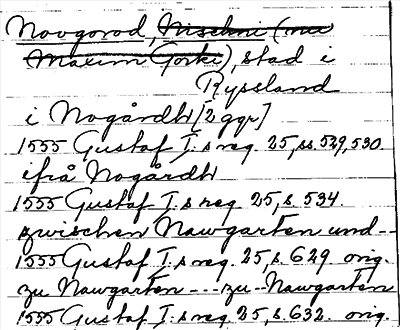 Novgorod, Nischni (nu
Maxim Gorki), stad i
Ryssland
i Nogårdh [2 ggr]
1555 Gustaf I:s reg. 25, ss. 529, 530.
ifrå Nogårdh
1555 Gustaf I:s reg. 25, s. 534.
zwischen Nawgarten und --
1555 Gustaf I:s reg. 25, s. 629 orig.
zu Nawgarten --- zu Nawgarten
1555 Gustaf I:s reg. 25, s. 632. orig.